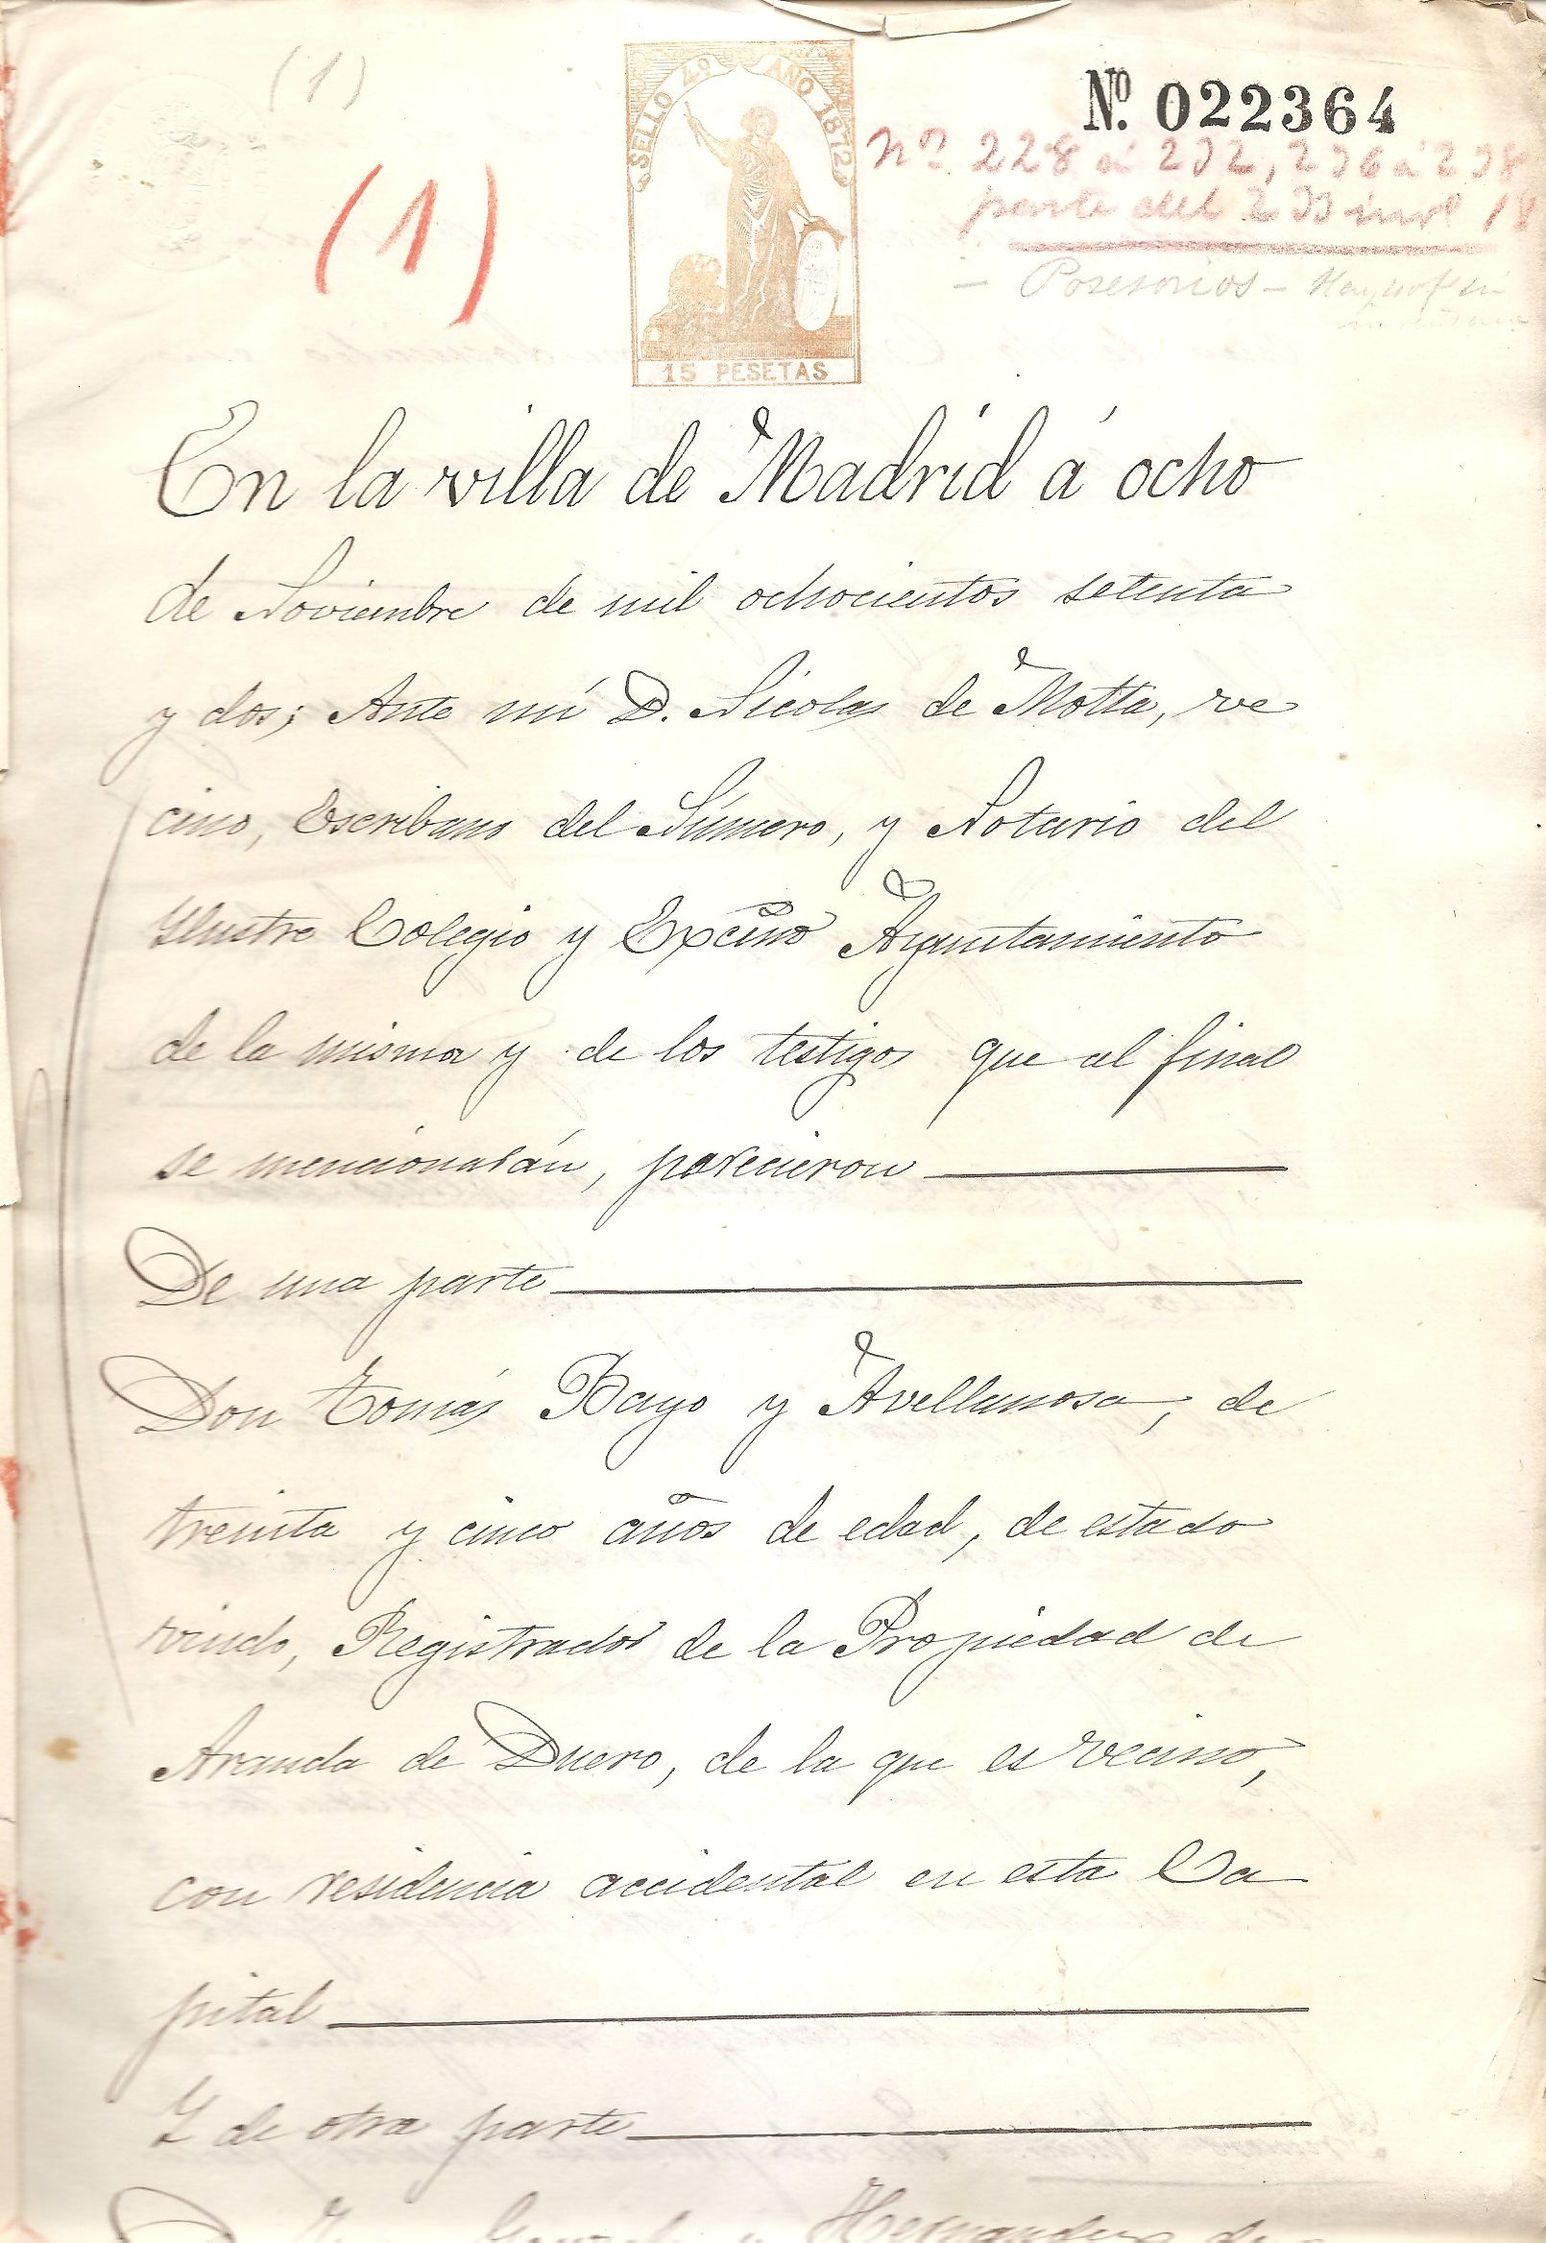 (1)
SELLO 4º AÑO 1872
15 PESETAS
Nº. 022364
nº 228 á 232, 236 á 238
parte del 233 invl 18
- Posesorios -
(1)
En la villa de Madrid á ocho
de Noviembre de mil ochocientos setenta
y dos; Ante mí D. Nicolas de Motta, ve
cino, Escribano del Número, y Notario del
Ylustre Colegio y Excmo Ayuntamiento
de la misma y de los testigos que al final
se mencionarán, parecieron
De una parte
Don Tomás Bayo y Avellanosa, de
treinta y cinco años de edad, de estado
viudo, Registrador de la Propiedad de
Aranda de Duero, de la que es vecino,
con residencia accidental en esta Ca
pital
Y de otra parte
Hernandez de